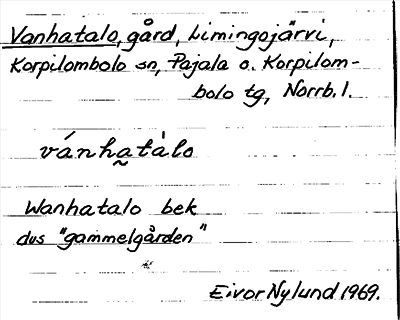 Vanhatalo, gård, Limingojärvi,
Korpilombolo sn, Pajala o. Korpilom-
bolo tg, Norrb. l.
vánha̰tàlo
Wanhatalo bek
dvs "gammelgården"
Eivor Nylund 1969.